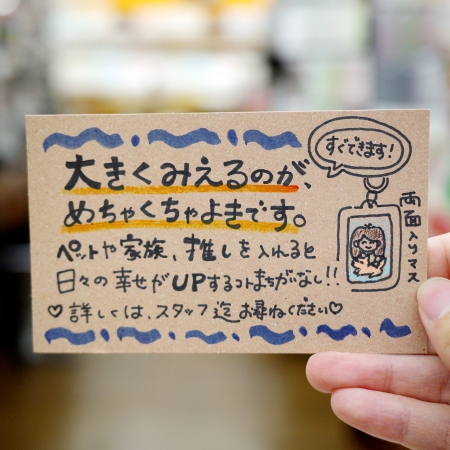 大きくみえるのが、
めちゃくちゃよきです。
ペットや家族、推しを入れると
日々の幸せがUPするコトまちがいなし!!
♡詳しくは、スタッフ迄お尋ねください♡
すぐできます!
両面入りマス